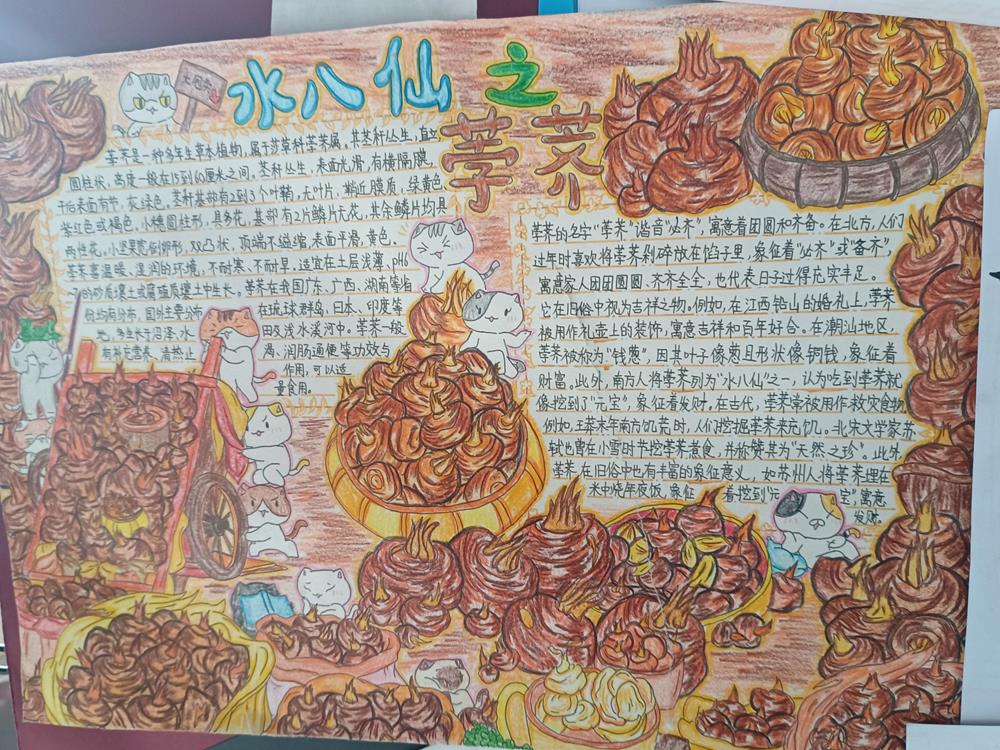 水八仙之
荸荠
荸荠是一种多年生草本植物，属于莎草科荸荠属。其茎秆丛生，直立
圆柱状，高度一般在15到60厘米之间，茎秆丛生，表面光滑，有横隔膜，
干后表面有节，灰绿色，茎秆基部有2到3个叶鞘，无叶片，鞘近膜质，绿黄色
紫红色或褐色，小穗圆柱形，具多花，基部有2片鳞片无花，其余鳞片均具
两性花。小坚果宽倒卵形，双凸状，顶端不缢缩，表面平滑，黄色，
荸荠喜温暖、湿润的环境，不耐寒、不耐旱，适宜在土层浅薄，pH
的砂质壤土或腐殖质壤土中生长。荸荠在我国广东、广西、湖南等省
份均有分布，国外主要分布 在琉球群岛，日本、印度等
地，多生长于沼泽、水 田及浅水溪河中。荸荠一般
有补充营养、清热止 渴、润肠通便等功效与
作用，可以适
量食用。
荸荠的名字“荸荠”谐音“必齐”，寓意着团圆和齐备。在北方，人们
过年时喜欢将荸荠剁碎放在馅子里，象征着“必齐”或“备齐”，
寓意家人团团圆圆、齐齐全全，也代表日子过得充实丰足。
它在旧俗中视为吉祥之物。例如，在江西铅山的婚礼上，荸荠
被用作礼盒上的装饰，寓意吉祥和百年好合。在潮汕地区，
荸荠被称为“钱葱”，因其叶子像葱且形状像铜钱，象征着
财富。此外，南方人将荸荠列为“水八仙”之一，认为吃到荸荠就
像挖到了“元宝”，象征着发财。在古代，荸荠常被用作救灾食物
例如，王莽末年南方饥荒时，人们挖掘荸荠来充饥。北宋文学家苏
轼也曾在小雪时节挖荸荠煮食，并称赞其为“天然之珍”。此外
荸荠在旧俗中也有丰富的象征意义，如苏州人将荸荠埋在
米中烧年夜饭，象征 着挖到“元 宝”，寓意
发财。